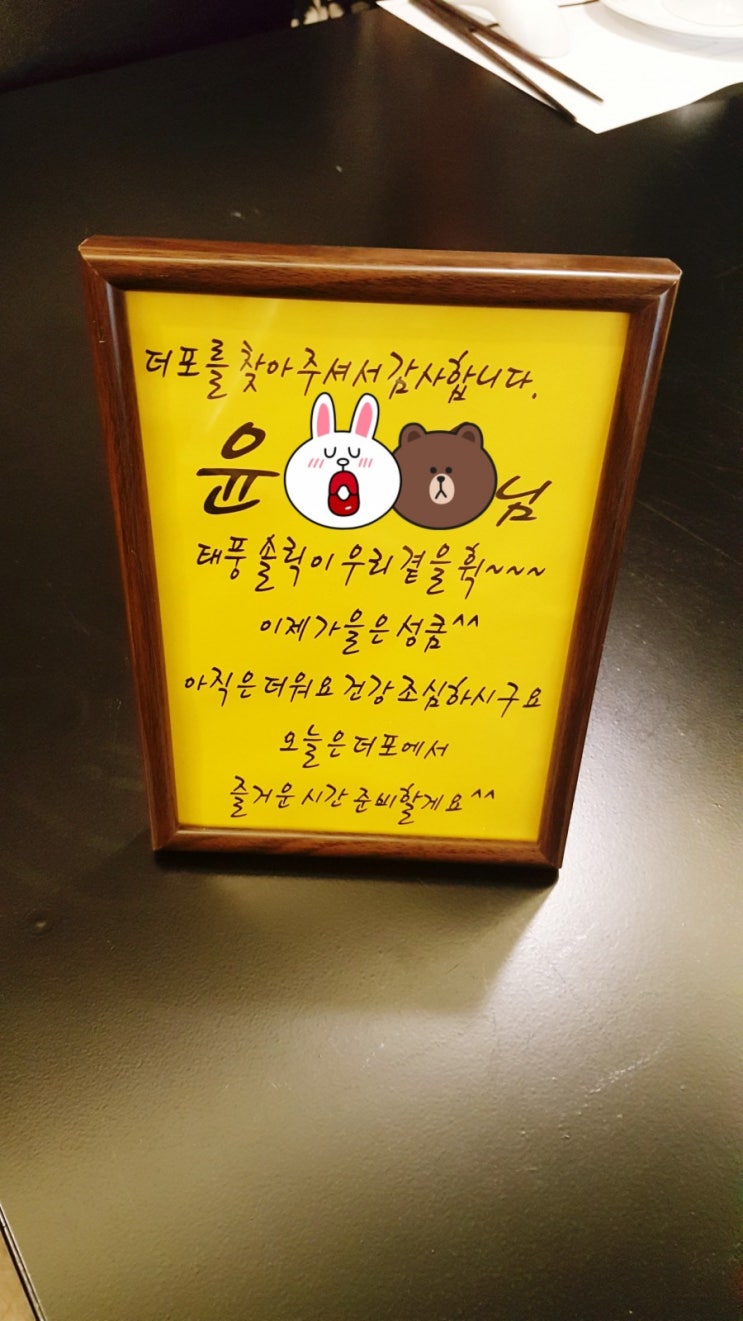 더포를 찾아주셔서 감사합니다.
윤 님
태풍 솔릭이 우리 곁을 휙~~~
이제 가을은 성큼^^
아직은 더워요 건강 조심하시구요
오늘은 더포에서
즐거운 시간 준비할게요^^